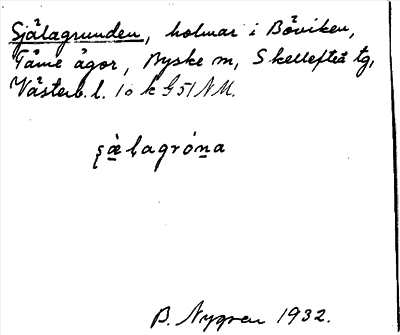 Själagrunden, holmar i Böviken,
Tåme ågor, Byske sn, Skellefteå tg,
Västerb. l. 10 k G51 NM.
ʂæ̀lagró̱na
B. Nygren 1932.